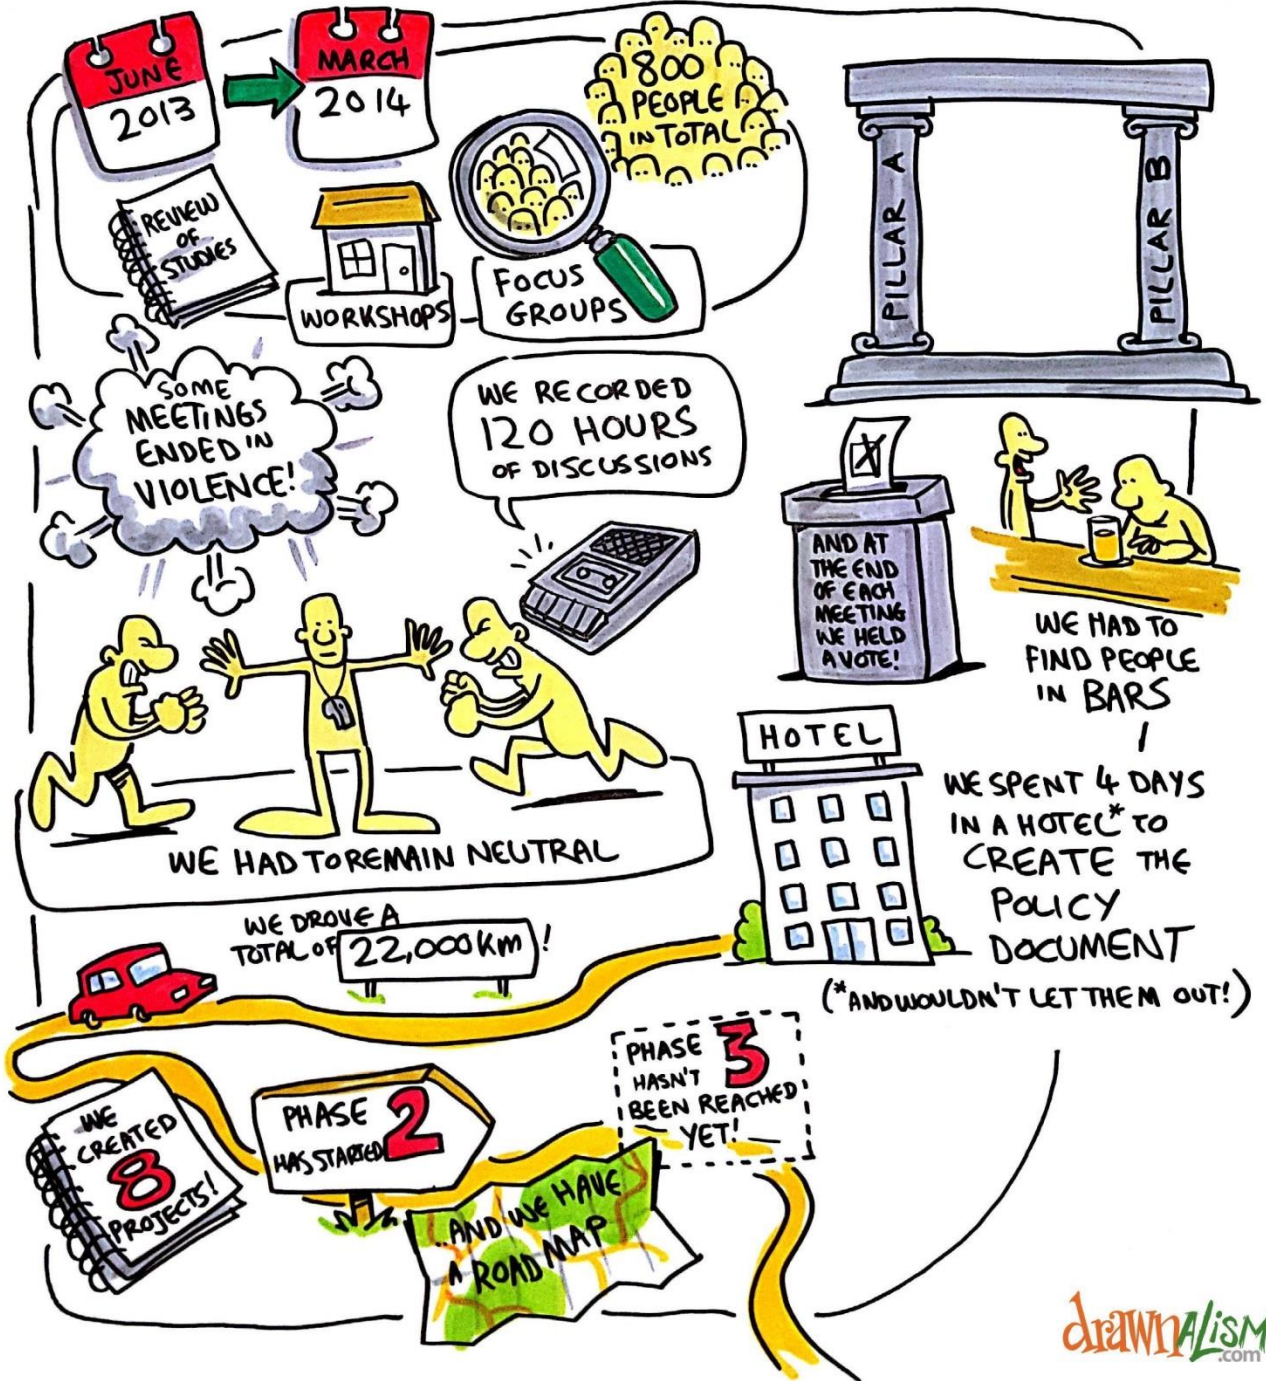 JUNE
2013
MARCH
2014
800
PEOPLE
IN TOTAL
REVIEW
OF
STUDIES
WORKSHOPS
FOCUS
GROUPS
PILLAR A
PILLAR B
SOME
MEETINGS
ENDED IN
VIOLENCE!
WE RECORDED
120 HOURS
OF DISCUSSIONS
AND AT
THE END
OF EACH
MEETING
WE HELD
A VOTE!
WE HAD TO
FIND PEOPLE
IN BARS
WE HAD TO REMAIN NEUTRAL
HOTEL
WE SPENT 4 DAYS
IN A HOTEL* TO
CREATE THE
POLICY
DOCUMENT
(*AND WOULDN'T LET THEM OUT!)
WE DROVE A
TOTAL OF 22,000 km!
WE
CREATED
8
PROJECTS!
PHASE 2
HAS STARTED
PHASE 3
HASN'T
BEEN REACHED
YET!
..AND WE HAVE
A ROAD MAP
drawnALISM
.com